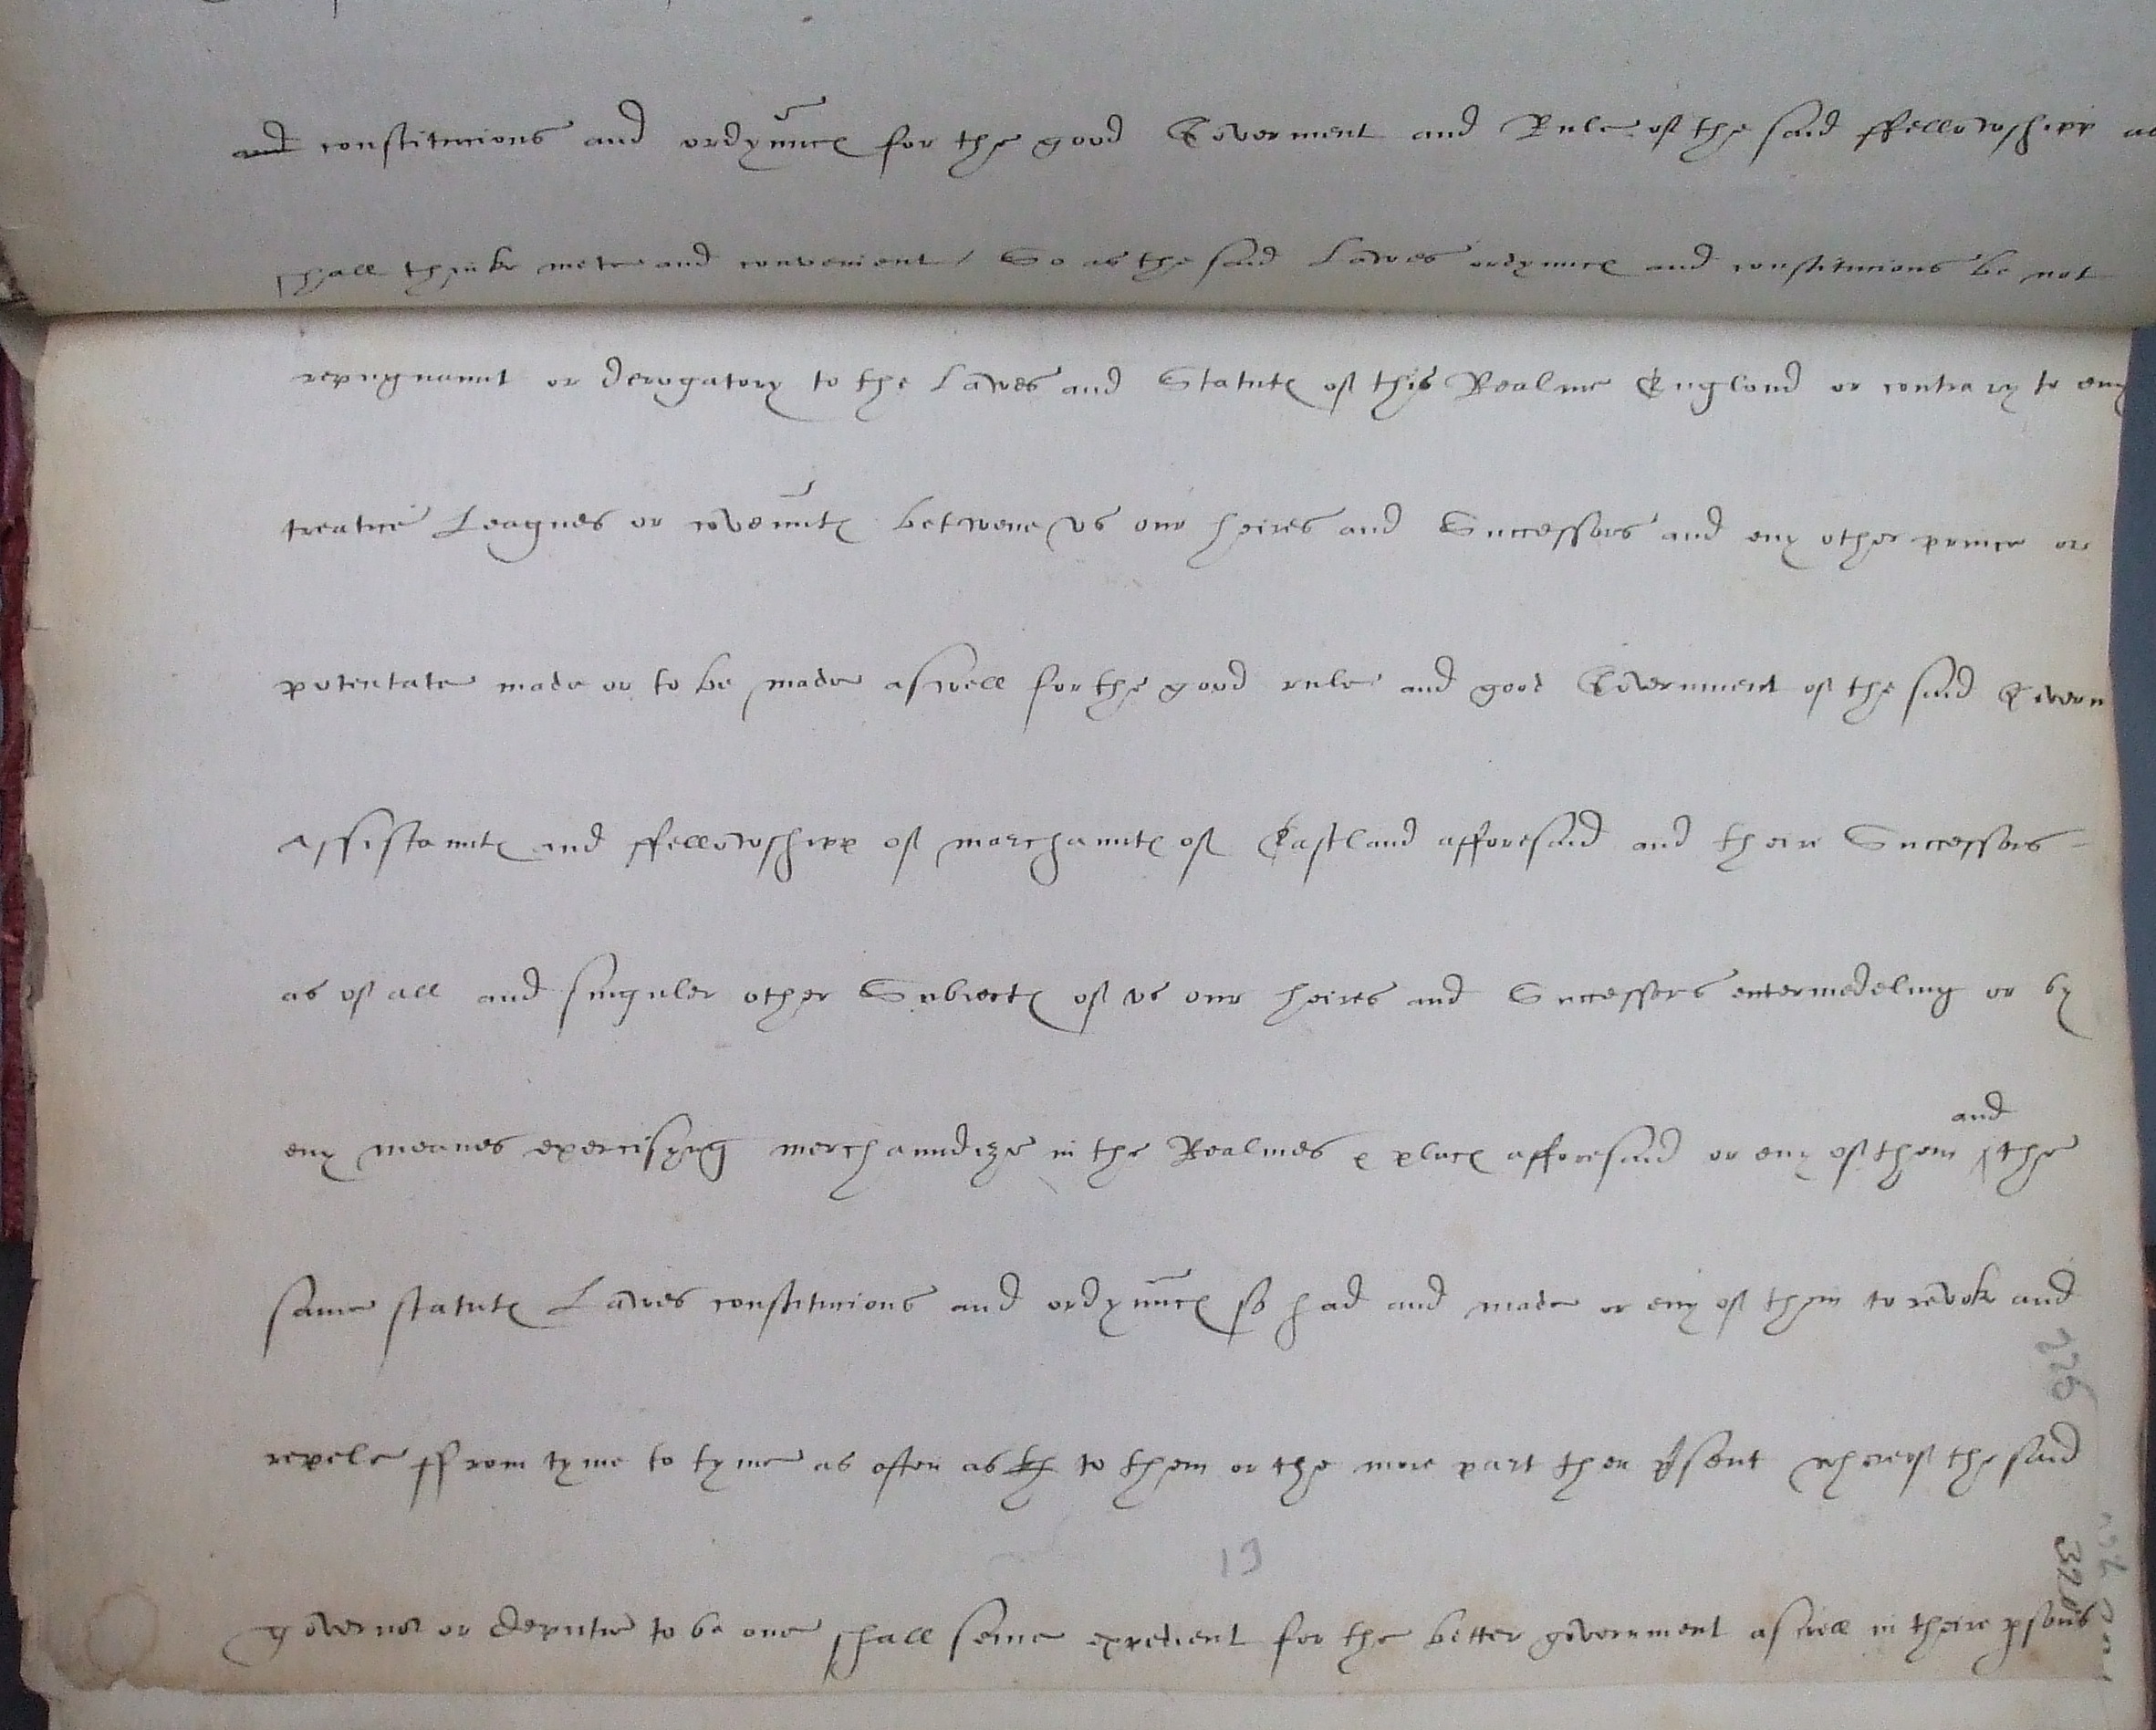 and constitucions and ordynnc℮ for the good Goverment and Rule of the said ffellowshipp as
shall thinke mete and convenient / So as the said Lawes ordynnc℮ and constitucions be not
repugnannt or derogatory to the Lawes and Statut℮ of this Realme England or contrary to eny
treatie Leagues or covennt℮ betwene vs our heires and Successors and eny other prince or
potentate made or to be made aswell for the good rule and good Government of the said Govern
Assistannt℮ and ffellowshipp of merchannt℮ of Eastland afforesaid and their Successors -
as of all and singuler other Subiect℮ of vs our heires and Successors entermedeling or by
eny meanes exercisyng merchanndize in the Realmes & plac℮ afforesaid or eny of them ^and the
same statut℮ Lawes constitucions and ordynnc℮ so had and made or eny of them to revoke and
repele ffrom tyme to tyme as often as th to them or the more part then psent wherof the said
governor or deputie to be one shall seme expedient for the better government aswell in theire psons
226
19
320